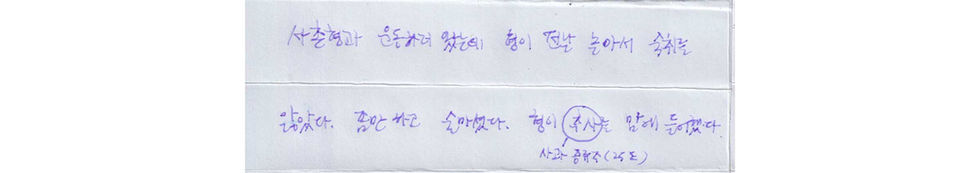 사촌형과 운동하러 왔는데 형이 전날 놀아서 숙취를
않았다. 품만 하고 술마셨다. 형이 추사를 맘에 들어했다.
사과 증류주 (25도)